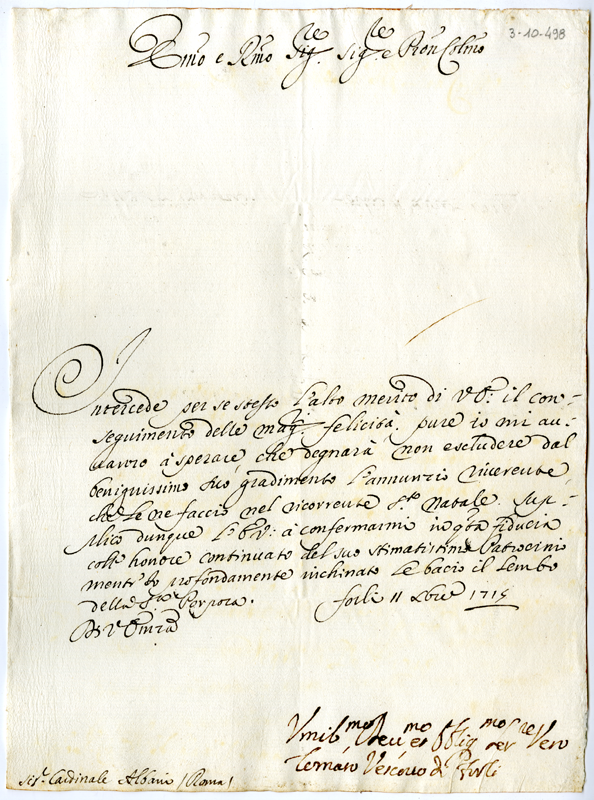 3-10-498
Emo e Rmo Sig.re Sig.re e Pron Colmo
Intercede per se stesso l'alto merito di V. E.: il con-
seguimento delle mag.ri felicità, pure io mi au-
avanzo à sperare che degnarà non escludere dal
benignissimo suo gradimento l'annunzio riverente
che le ne faccio nel ricorrente S.to Natale. Sup-
plico dunque l'E. V.: à confermarmi in q.ta fiducia
coll' honore continuato del suo stimatissimo Patrocinio
mentre profondamente inchinato le bacio il lembo
della S.ra Porpora. Forlì 11 Xbre 1715
Di V. Emza
Vmil.mo Devu.mo et Obblig.mo ser.re Vero
Tomaso Vescovo di Forlì
Sig.r Cardinale Albani / Roma /